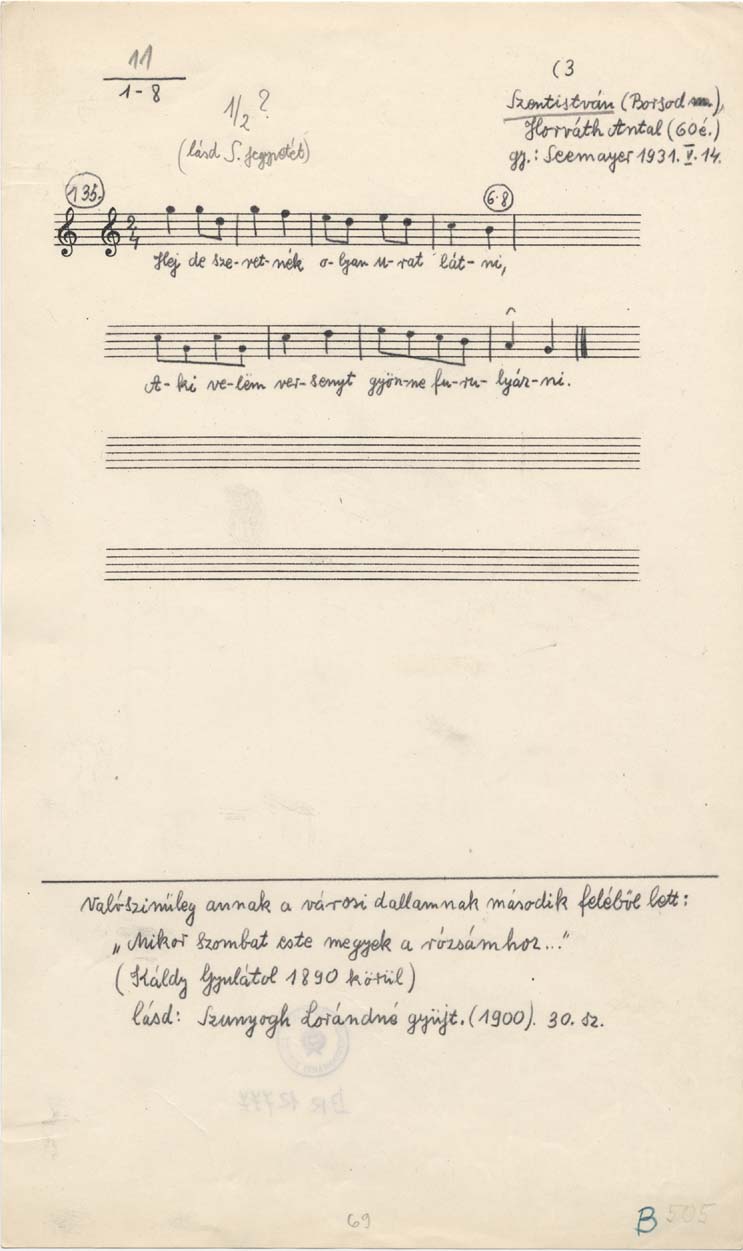 11
1-8
1/2 ?
(lásd S. jegyzetét)
(3
Szentistván (Borsod m.),
Horváth Antal (60é.)
gy.: Seemayer 1931. V. 14.
135.
6·8
2/4
Hej de sze-ret-nék o-lyan u-rat lát-ni,
A-ki ve-lëm ver-senyt gyön-ne fu-ru-lyáz-ni.
Valószinüleg annak a városi dallamnak második feléből lett:
„Mikor szombat este megyek a rózsámhoz..."
(Káldy Gyulától 1890 körül)
lásd: Szunyogh Lorándné gyüjt. (1900). 30. sz.
69
B 505